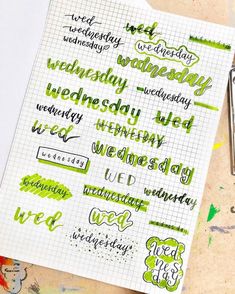 wed
wednesday
wednesday
wed
wednesday
wednesday
wednesday
wednesday
wednesday
wednesday
wed
WEDNESDAY
wednesday
wed
wednesday
wednesday
WED
wednesday
wednesday
wednesday
wednesday
wed
wed
wednesday
wednesday
WED
NES
DAY